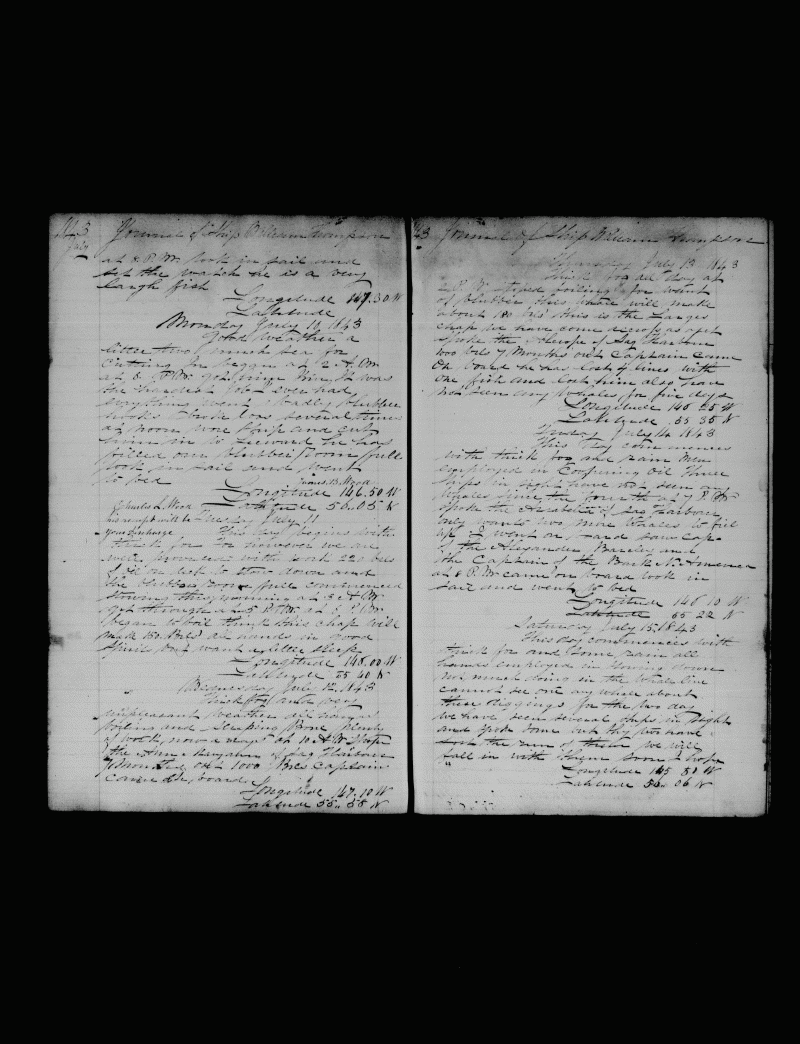 1843 Journal of Ship William Thompson
July
at 8 P.M. took in sail and
set the watch he is a very
large fish
Longitude 147.30 W
Latitude
Monday July 10, 1843
Good Weather a
little two much sea for
Cutting in began at 2 A.M.
at 8 P.M. got him it was
the hardest I ever had
everything went badly blubber
hooks broke several times
at noon wore Ship and cut
him in to leeward he has
filled our Blubber Room full
took in sail and went
to bed
James B. Wood
Longitude 146.50 W
Charles L. Wood Latitude 56.05 N
Tuesday July 11
your discharge This day begins with
thick fog however we are
well provided with work 220 bbls
of oil on deck to stow down and
the blubber Room full commenced
stowing this morning at 3 A.M.
got through at 5 P.M. at
began to boil think this chap will
make 180 Bbls all hands in good
Spirits but want a little sleep
Longitude 148.00 W
Latitude 55 40 N
Wednesday July 12, 1843
thick fog and very
unpleasant weather all hands
boiling and Scraping Bone plenty
of work now a days at 10 A.M. Spoke
the Ann of Sag Harbour
7 Months out 1000 Bbls Captain
came on board
Longitude 147.10 W
Latitude 55.. 55 N
43 Journal of Ship William Thompson
Thursday July 13 1843
thick fog all day at
2 P.M. stoped boiling for want
of blubber this whale will make
about 180 bbls this is the Larges
chap we have come across as yet
spoke the of Sag Harbour
1000 bbls 7 Months out Captain came
on board he has lost 4 lines with
one fish and lost him also have
not seen any whales for five days
Longitude 146 25 W
Latitude 55 35 N
Friday July 14 1843
This day commences
with thick fog and rain Men
employed in Coopering Oil three
Ships in sight have not seen any
whales since the fourth at 7 P.M.
spoke the of Sag Harbour
only wants two more Whales to fill
up I went on board saw Cap
of the Alexander Barclay and
the Captain of the Bark N. America
at 8 P.M. came on board took in
sail and went to bed
Longitude 146 10 W
Latitude 55 22 N
Saturday July 15, 1843
This day commences with
thick fog and Some rain all
hands employed in Stowing down
not much doing in the whale line
cannot see one any where about
these diggings for the two day
we have seen several ships in sight
and spok some but they too have
lost the run of them we will
fall in with them soon I hope
Longitude 145 50 W
Latitude 56 06 N